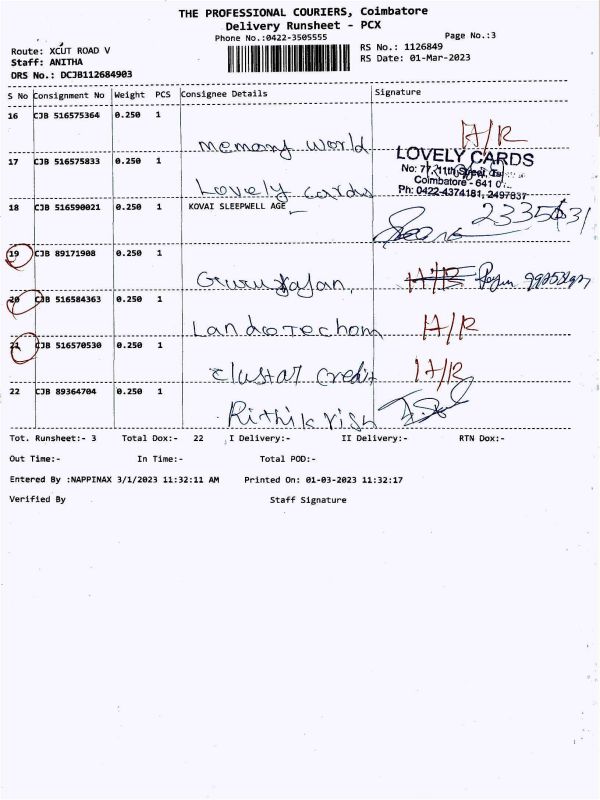 THE PROFESSIONAL COURIERS, Coimbatore
Delivery Runsheet - PCX
Phone No.:0422-3505555
Page No.:3
Route: XCUT ROAD V
RS No.: 1126849
Staff: ANITHA
RS Date: 01-Mar-2023
DRS No.: DCJB112684903
S No Consignment No Weight PCS Consignee Details Signature
16 CJB 516575364 0.250 1
memory world H/R
17 CJB 516575833 0.250 1
LOVELY CARDS
No: 77, 11th Street,
Coimbatore - 641 0
Ph: 0422-4374181, 2497837
Lovely cards
18 CJB 516590021 0.250 1 KOVAI SLEEPWELL AGE
19 CJB 89171908 0.250 1
H/R
20 CJB 516584363 0.250 1
H/R
21 CJB 516570530 0.250 1
clustar credit H/R
22 CJB 89364704 0.250 1
Tot. Runsheet:- 3 Total Dox:- 22 I Delivery:- II Delivery:- RTN Dox:-
Out Time:- In Time:- Total POD:-
Entered By :NAPPINAX 3/1/2023 11:32:11 AM Printed On: 01-03-2023 11:32:17
Verified By Staff Signature